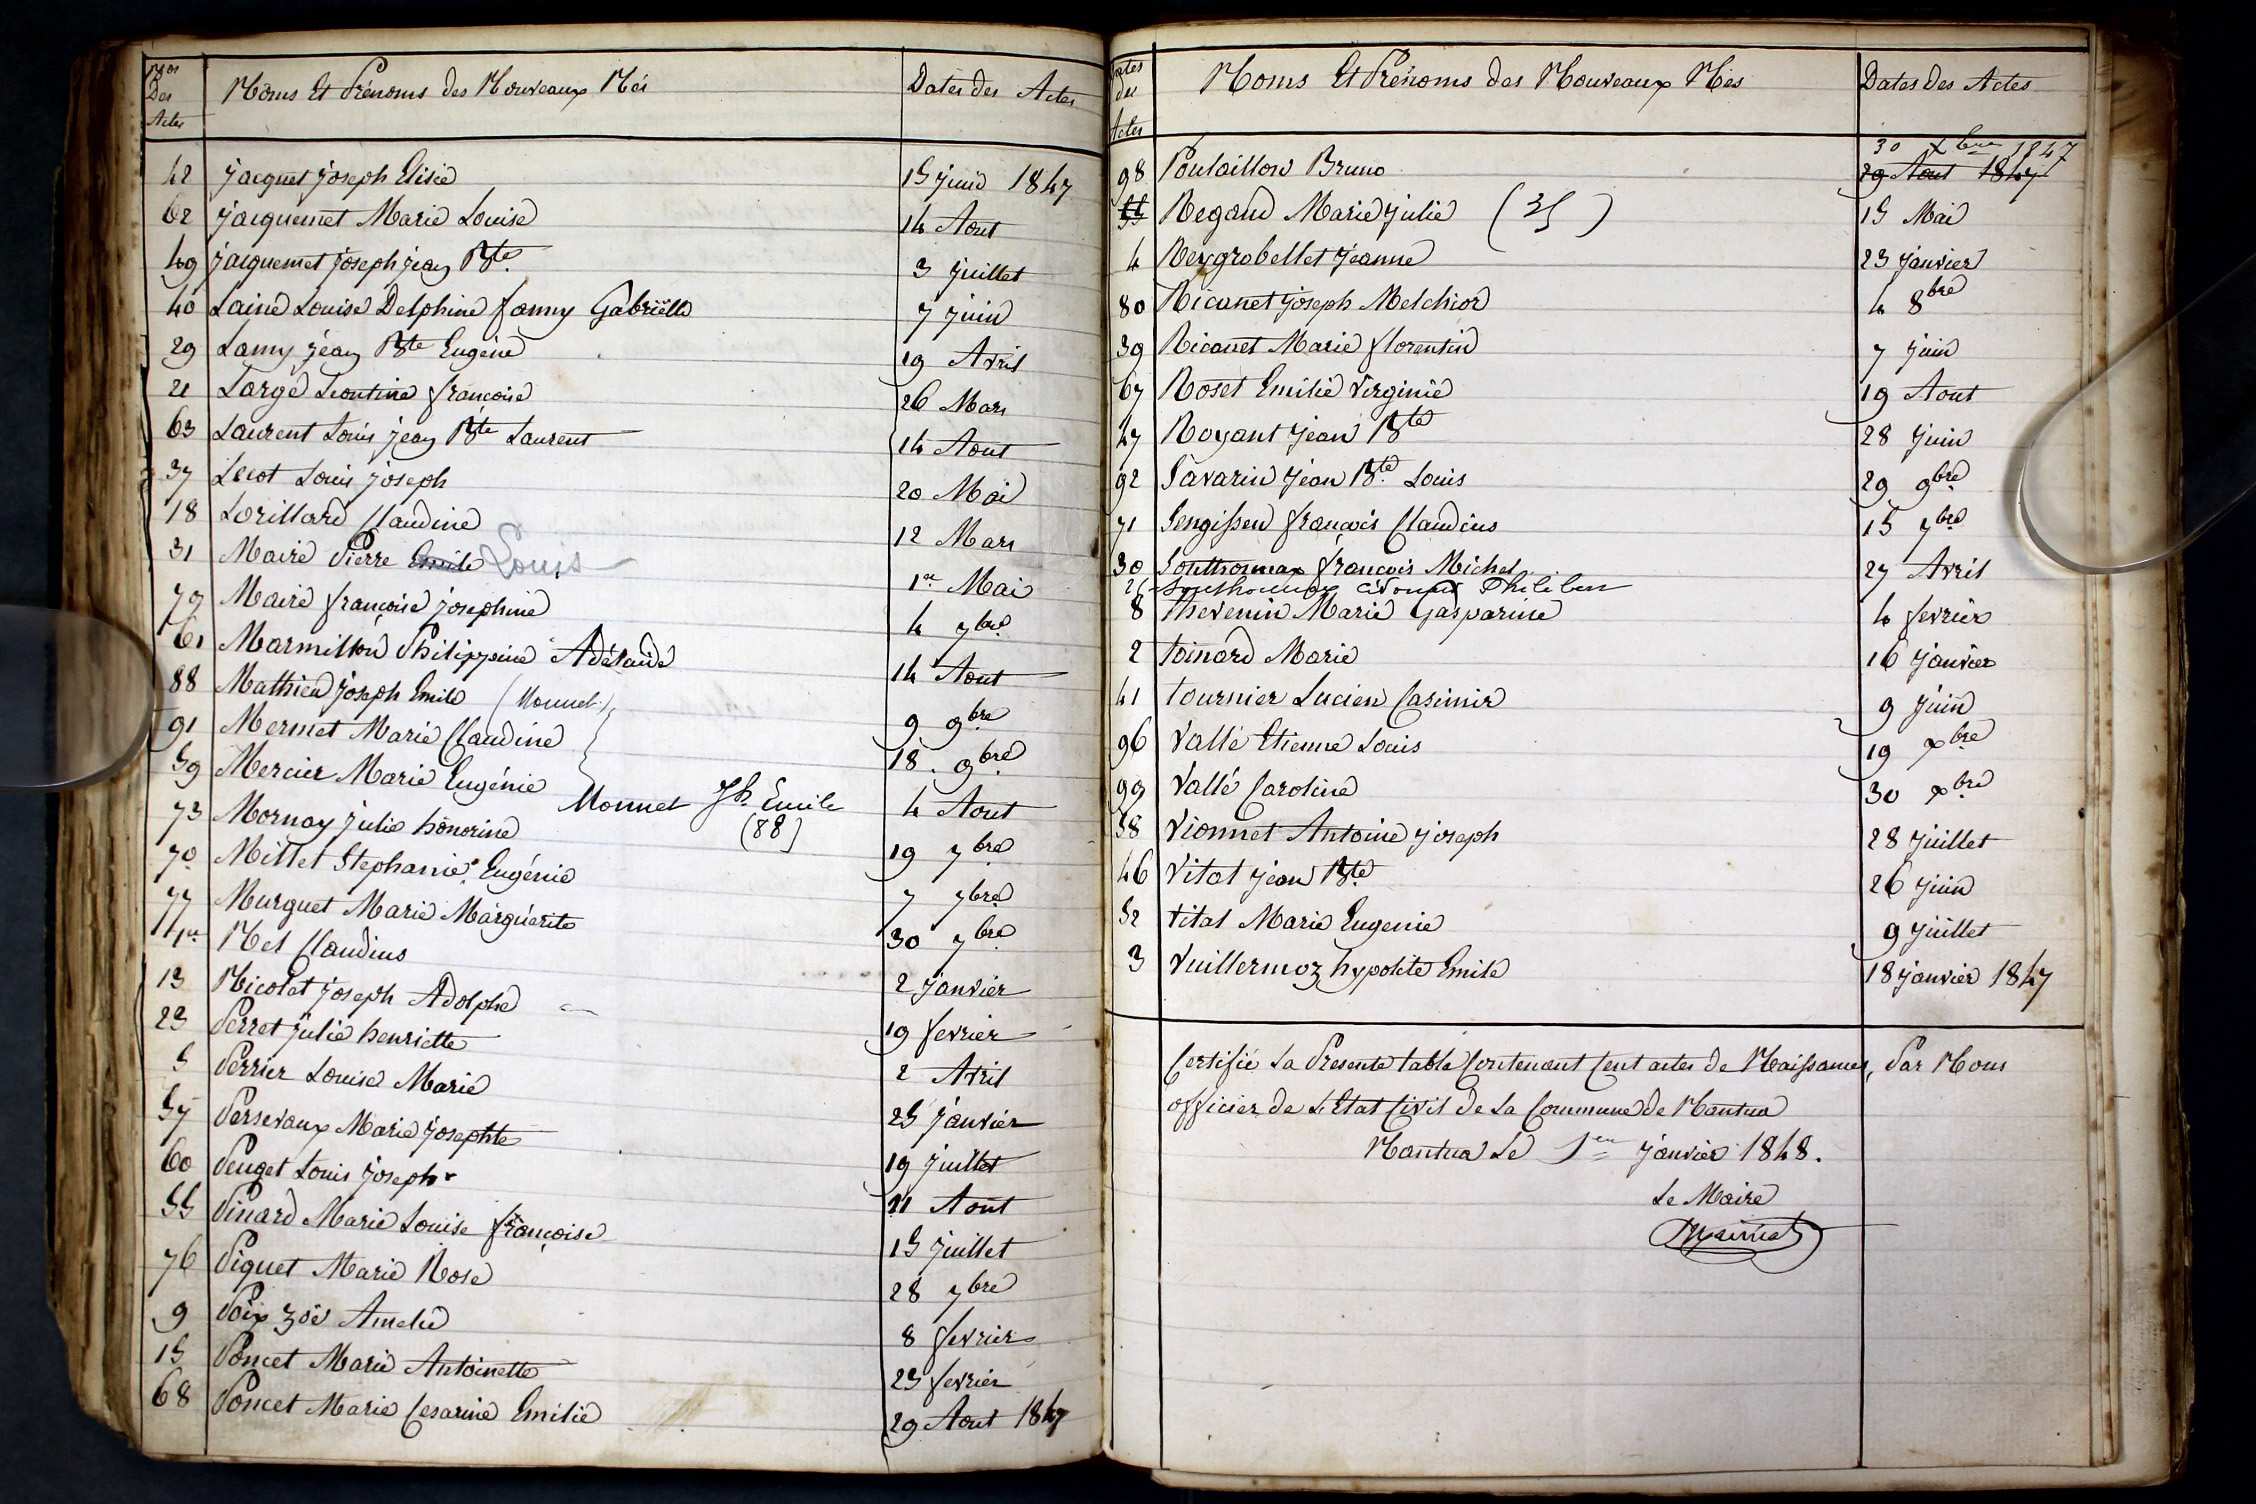 Nos Des Actes Noms Et Prénoms des Nouveaux Nés Dates des Actes
42 jacquet joseph Elisié 15 juin 1847
62 jacquemet Marie Louise 14 Aout
49 jacquemet joseph jean Bte 3 juillet
40 Lainé Louise Delphine fanny Gabrielle 7 juin
29 Lamy jean Bte Eugéne 19 Avril
21 Large Leontine francoise 26 Mars
63 Laurent Louis jean Bte Laurent 14 Aout
37 Lecot Louis joseph 20 Mai
18 Lorillard Claudine 12 Mars
31 Maire Pierre Emile Louis 1er Mai
79 Maire françoise josephine 4 7bre
61 Marmillon Philippine Adélaide 14 Aout
88 Mathieu joseph Emile (Monnet) 9 9bre
91 Mermet Marie Claudine 18 9bre
59 Mercier Marie Eugénie 4 Aout
Monnet Jh Emile (88)
73 Mornay julie honorine 19 7bre
70 Millet Stephanie Eugénie 7 7bre
77 Murguet Marie Marguérite 30 7bre
1er Nel Claudius 2 janvier
13 Nicolat joseph Adolphe 19 fevrier
23 Perret julie henriette 2 Avril
5 Perrier Louise Marie 25 janvier
57 Persevaux Marie josephte 19 juillet
60 Peuget Louis joseph 11 Aout
55 Pinard Marie Louise françoise 15 juillet
76 Piquet Marie Rose 28 7bre
9 Poix zoé Amelie 8 fevrier
15 Poncet Marie Antoinette 25 fevrier
68 Poncet Marie Cesarine Emélie 29 Aout 1847
Dates des Actes Noms Et Prénoms des Nouveaux Nés Dates Des Actes
30 xbre 1847
98 Poulaillon Bruno 29 Aout 1847
35 Regaud Marie julie (35) 15 Mai
4 Reygrobellet jéanne 23 janvier
80 Ricanet joseph Melchior 4 8bre
39 Ricanet Marie florentin 7 juin
67 Roset Emilie Virginie 19 Aout
47 Royant jean Bte 28 juin
92 Savarin jean Bte Louis 29 9bre
71 Sengissen françois Claudius 15 7bre
30 Southonnax françois Michel 27 Avril
26 Southonnax Philiber
8 thevenin Marie Gasparine 4 fevrier
2 toinard Marie 16 janvier
41 tournier Lucien Casimir 9 juin
96 Vallé Etienne Louis 19 xbre
99 Vallé Caroline 30 xbre
58 Vionnet Antoine joseph 28 juillet
46 Vital jean Bte 26 juin
52 Vital Marie Eugenie 9 juillet
3 Vuillermoz hypolite Emile 18 janvier 1847
Certifié La Presente table Contenant Cent actes de Naissances, Par Nous
officier de L'Etat Civil de La Commune de Nantua
Nantua Le 1er janvier 1848.
Le Maire